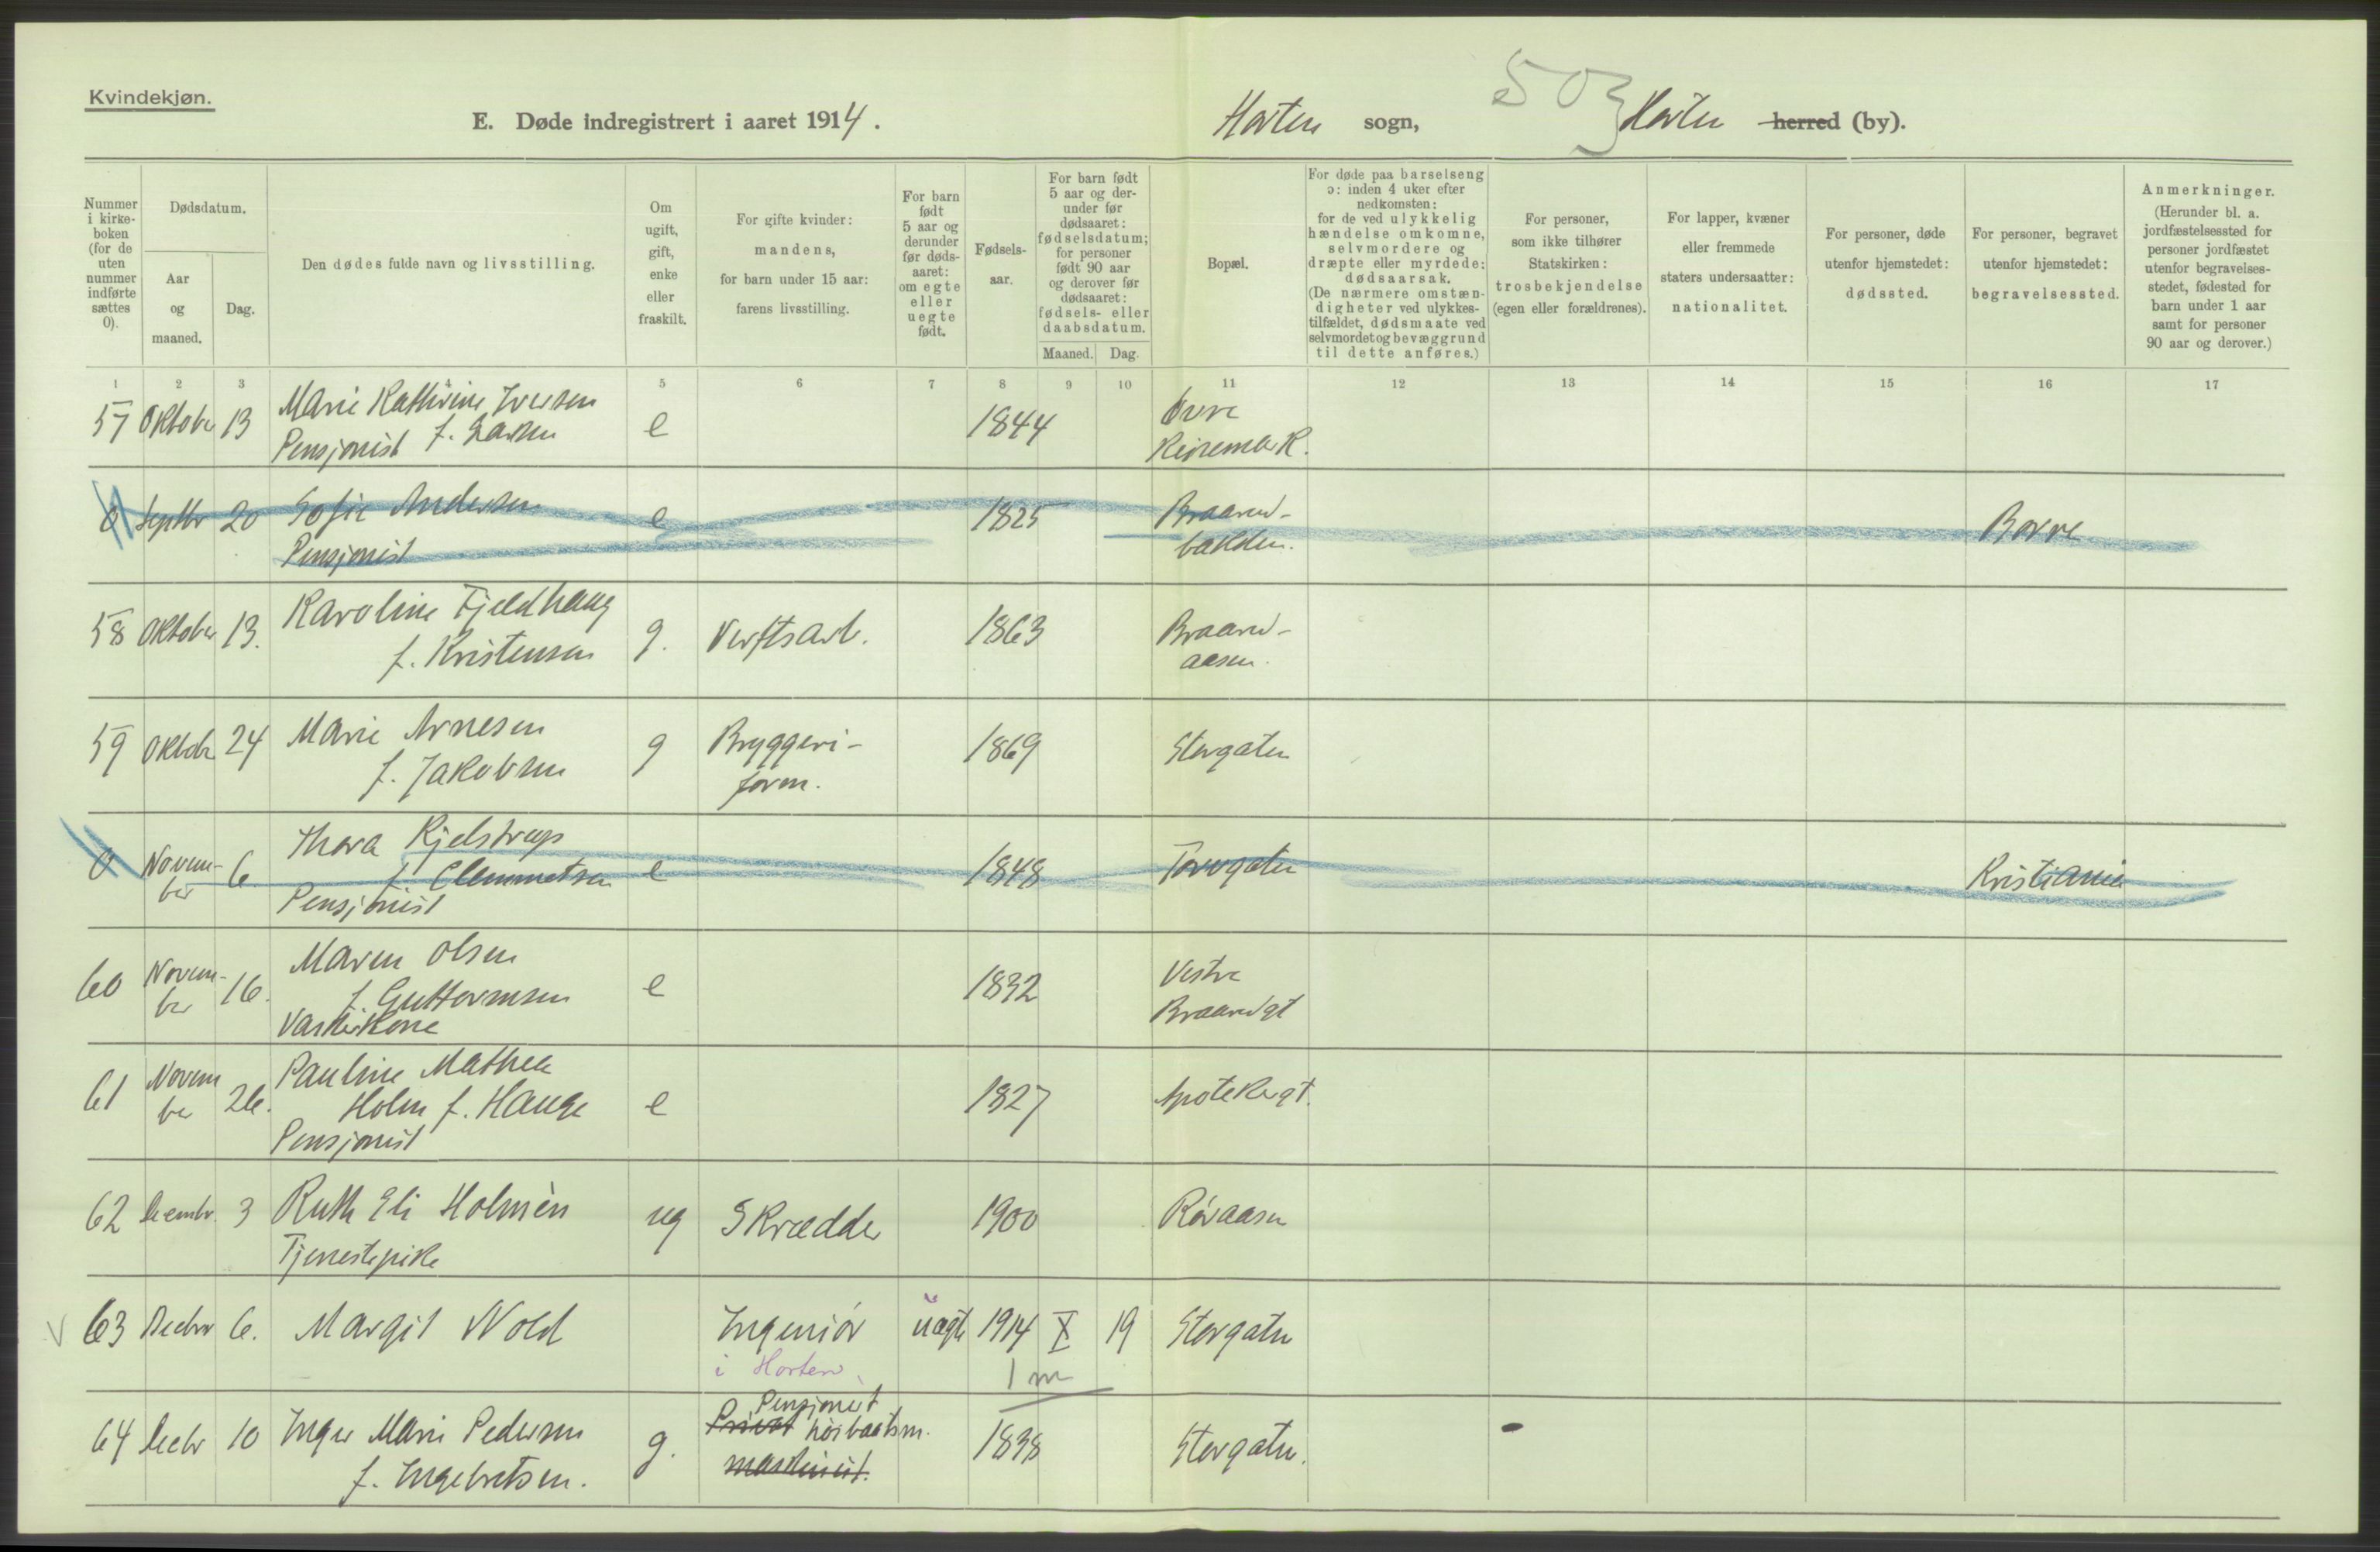 Kvindekjøn.
E. Døde indregistrert i aaret 1914.
Horten sogn,
503
Horten herred (by).
Nummer i kirke-boken (for de uten nummer indførte sættes 0).
Dødsdatum.
Aar og maaned.
Dag.
Den dødes fulde navn og livsstilling.
Om ugift, gift, enke eller fraskilt.
For gifte kvinder: mandens, for barn under 15 aar: farens livsstilling.
For barn født 5 aar og derunder før døds-aaret: om egte eller uegte født.
Fødsels-aar.
For barn født 5 aar og der-under før dødsaaret: fødselsdatum; for personer født 90 aar og derover før dødsaaret: fødsels- eller daabsdatum.
Maaned.
Dag.
Bopæl.
For døde paa barselseng ɔ: inden 4 uker efter nedkomsten: for de ved ulykkelig hændelse omkomne, selvmordere og dræpte eller myrdede: dødsaarsak. (De nærmere omstæn-digheter ved ulykkes-tilfældet, dødsmaate ved selvmordet og bevæggrund til dette anføres.)
For personer, som ikke tilhører Statskirken: trosbekjendelse (egen eller forældrenes).
For lapper, kvæner eller fremmede staters undersaatter: nationalitet.
For personer, døde utenfor hjemstedet: dødssted.
For personer, begravet utenfor hjemstedet: begravelsessted.
Anmerkninger. (Herunder bl. a. jordfæstelsessted for personer jordfæstet utenfor begravelses-stedet, fødested for barn under 1 aar samt for personer 90 aar og derover.)
1 2 3 4 5 6 7 8 9 10 11 12 13 14 15 16 17
57 Oktober 13 Marie Kathrine Iversen f. Larsen e 1844 Øvre Keisemark.
Pensjonist
0 Septbr 20 Sofie Andersen e 1825 Braarud-bakken. Borre
Pensjonist
58 Oktober 13. Karoline Fjeldhaug g. Verftsarb. 1863 Braarud-aasen.
f. Kristensen
59 Oktobr 24 Marie Arnesen g Bryggeri-form. 1869 Storgaten
f. Jakobsen
0 Novem-ber 6 Thora Kjelstrup e 1848 Torvgaten Kristiania
f. Clemmetsen
Pensjonist
60 Novem-ber 16. Maren Olsen e 1832 Vestre Braarudgt
f. Guttormsen
Vaskerkone
61 Novem ber 26. Pauline Mathea e 1827 Apotekergt.
Holm f. Hauge
Pensjonist
62 Decembr. 3 Ruth Eli Holmèn ug Skrædder 1900 Røraasen
Tjenestepike
63 Decbr 6. Margit Wold Ingeniør uægte 1914 X 19 Storgaten
i Horten
1 m
64 Decbr 10 Inger Marie Pedersen g. Pensjonert 1838 Storgaten.
Privat
maskinist.
f. Ingebretsen.